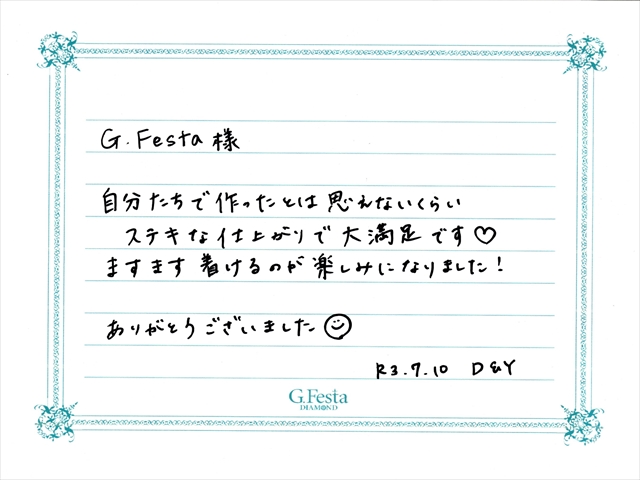 G.Festa様
自分たちで作ったとは思えないくらい
ステキな仕上がりで大満足です♡
ますます着けるのが楽しみになりました!
ありがとうございました☺
R3.7.10 D&Y
G.Festa
DIAMOND